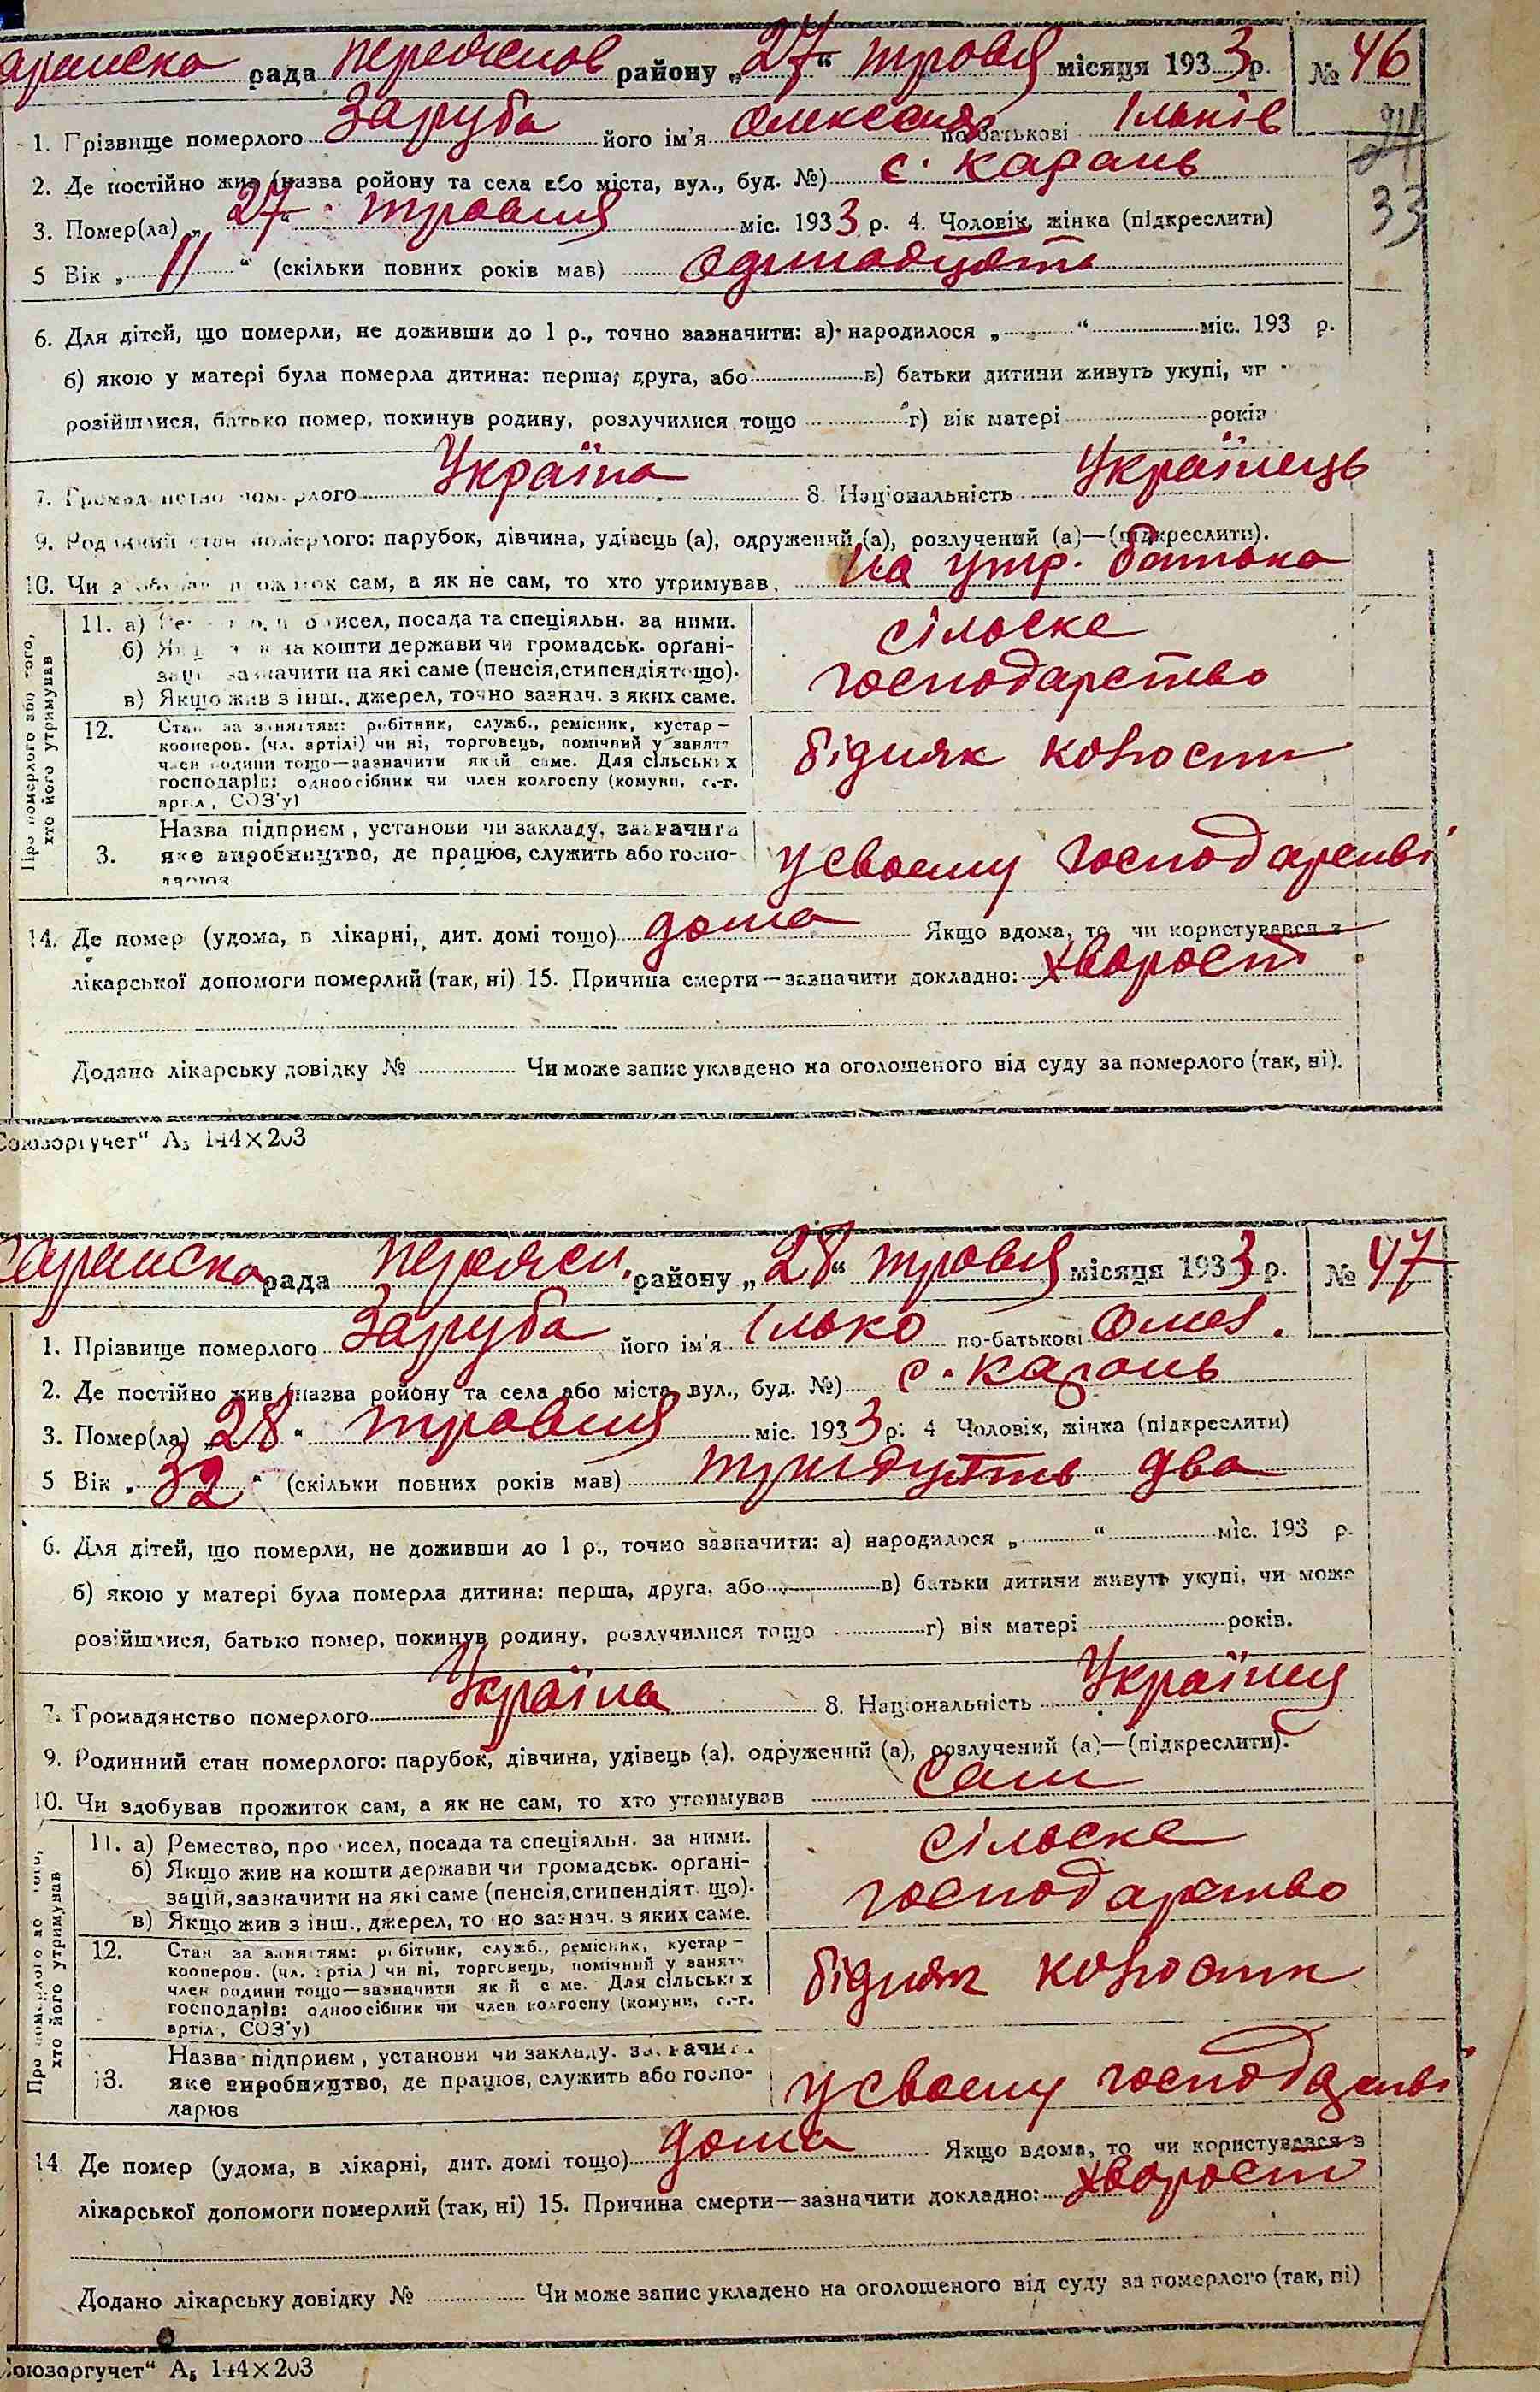 рада району „27“ травня місяця 1933 р. № 46
1. Прізвище померлого Заруба його ім'я Олександр по-батькові Ільків
2. Де постійно жив (назва ройону та села або міста, вул., буд. №) с. Карань
3. Помер(ла) „27“ травня міс. 1933 р. 4. Чоловік, жінка (підкреслити)
33
5 Вік „11“ (скільки повних років мав) одинадцять
6. Для дітей, що померли, не доживши до 1 р., точно зазначити: а) народилося „ “ міс. 193 р.
б) якою у матері була померла дитина: перша, друга, або в) батьки дитини живуть укупі, чи
розійшлися, батько помер, покинув родину, розлучилися тощо г) вік матері років
7. померлого Україна 8. Національність Українець
9. Родинний стан померлого: парубок, дівчина, удівець (а), одружений (а), розлучений (а)—(підкреслити).
10. Чи сам, а як не сам, то хто утримував на утр. батька
Про померлого або того, хто його утримував
11. а) посада та спеціяльн. за ними. сільске
б) на кошти держави чи громадськ. орґані-
зазначити на які саме (пенсія,стипендія тощо). господарство
в) Якщо жив з інш., джерел, точно зазнач. з яких саме.
12. Стан за заняттям: робітник, служб., ремісник, кустар—
кооперов. (чл. артілі) чи ні, торговець, помічний у занятт
член родини тощо—зазначити який саме. Для сільських бідняк
господарів: одноосібник чи член колгоспу (комуни, с.-г.
арт.л, СОЗ'у)
Назва підприєм, установи чи закладу, зазначити
3. яке виробництво, де працює, служить або госпо- у своєму господарстві
14. Де помер (удома, в лікарні, дит. домі тощо) дома Якщо вдома, то чи користувався з
лікарської допомоги померлий (так, ні) 15. Причина смерти—зазначити докладно: хворост
Додано лікарську довідку № Чи може запис укладено на оголошеного від суду за померлого (так, ні).
Союзоргучет“ А₅ 144×203
рада Переясл. району „28“ травня місяця 1933 р. № 47
1. Прізвище померлого Заруба його ім'я Ілько по-батькові Омел.
2. Де постійно жив (назва ройону та села або міста, вул., буд. №) с. Карань
3. Помер(ла) „28“ травня міс. 1933 р. 4 Чоловік, жінка (підкреслити)
5 Вік „32“ (скільки повних років мав) тридцять два
6. Для дітей, що померли, не доживши до 1 р., точно зазначити: а) народилося „ “ міс. 193 р.
б) якою у матері була померла дитина: перша, друга, або в) батьки дитини живуть укупі, чи може
розійшлися, батько помер, покинув родину, розлучилися тощо г) вік матері років.
7. Громадянство померлого Україна 8. Національність Українц
9. Родинний стан померлого: парубок, дівчина, удівець (а), одружений (а), розлучений (а)—(підкреслити).
10. Чи здобував прожиток сам, а як не сам, то хто утримував Сам
хто його утримував
11. а) Ремество, промисел, посада та спеціяльн. за ними. сільске
б) Якщо жив на кошти держави чи громадськ. орґані-
зацій,зазначити на які саме (пенсія,стипендія т. що). господарство
в) Якщо жив з інш., джерел, точно зазнач. з яких саме.
12. Стан за заняттям: робітник, служб., ремісник, кустар—
кооперов. (чл. артіл) чи ні, торговець, помічний у занятт
член родини тощо—зазначити який саме. Для сільських бідняк
господарів: одноосібник чи член колгоспу (комуни, с.-г.
артіл, СОЗ'у)
Назва підприєм, установи чи закладу. зазначит
13. яке виробництво, де працює, служить або госпо- у своєму господарстві
дарює
14 Де помер (удома, в лікарні, дит. домі тощо) дома Якщо вдома, то чи користувався з
лікарської допомоги померлий (так, ні) 15. Причина смерти—зазначити докладно: хворост
Додано лікарську довідку № Чи може запис укладено на оголошеного від суду за померлого (так, ні)
Союзоргучет“ А₅ 144×203